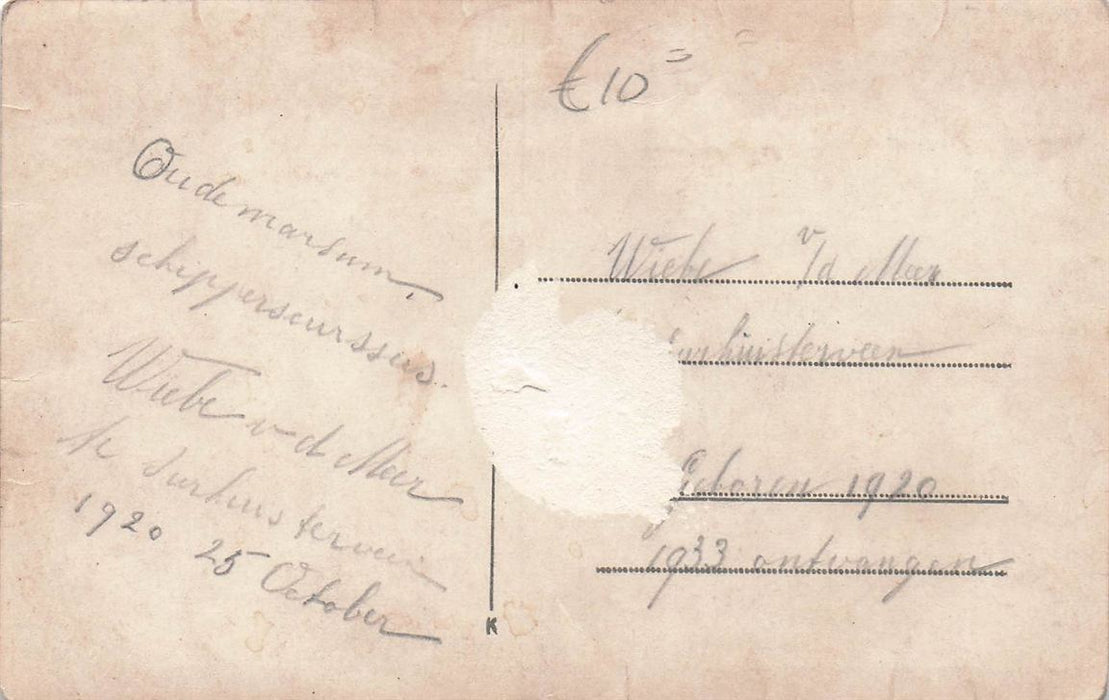 Oudemarsum,
schipperscurssus.
Wiebe v d Meer
te Surhusterveen
1920 25 October
€ 10 =
Wiebe v/d Meer
Surhuisterveen
Geboren 1920
1933 ontvangen
K